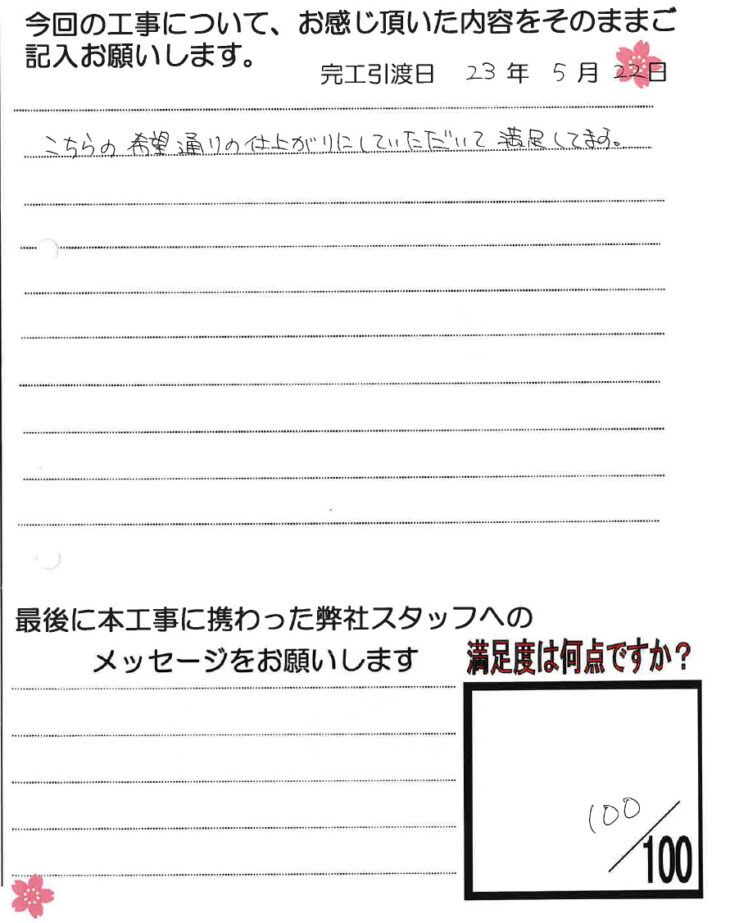 今回の工事について、お感じ頂いた内容をそのままご
記入お願いします。
完工引渡日 23年 5月 22日
こちらの希望通りの仕上がりにしていただいて満足してます。
最後に本工事に携わった弊社スタッフへの
メッセージをお願いします
満足度は何点ですか？
100/100